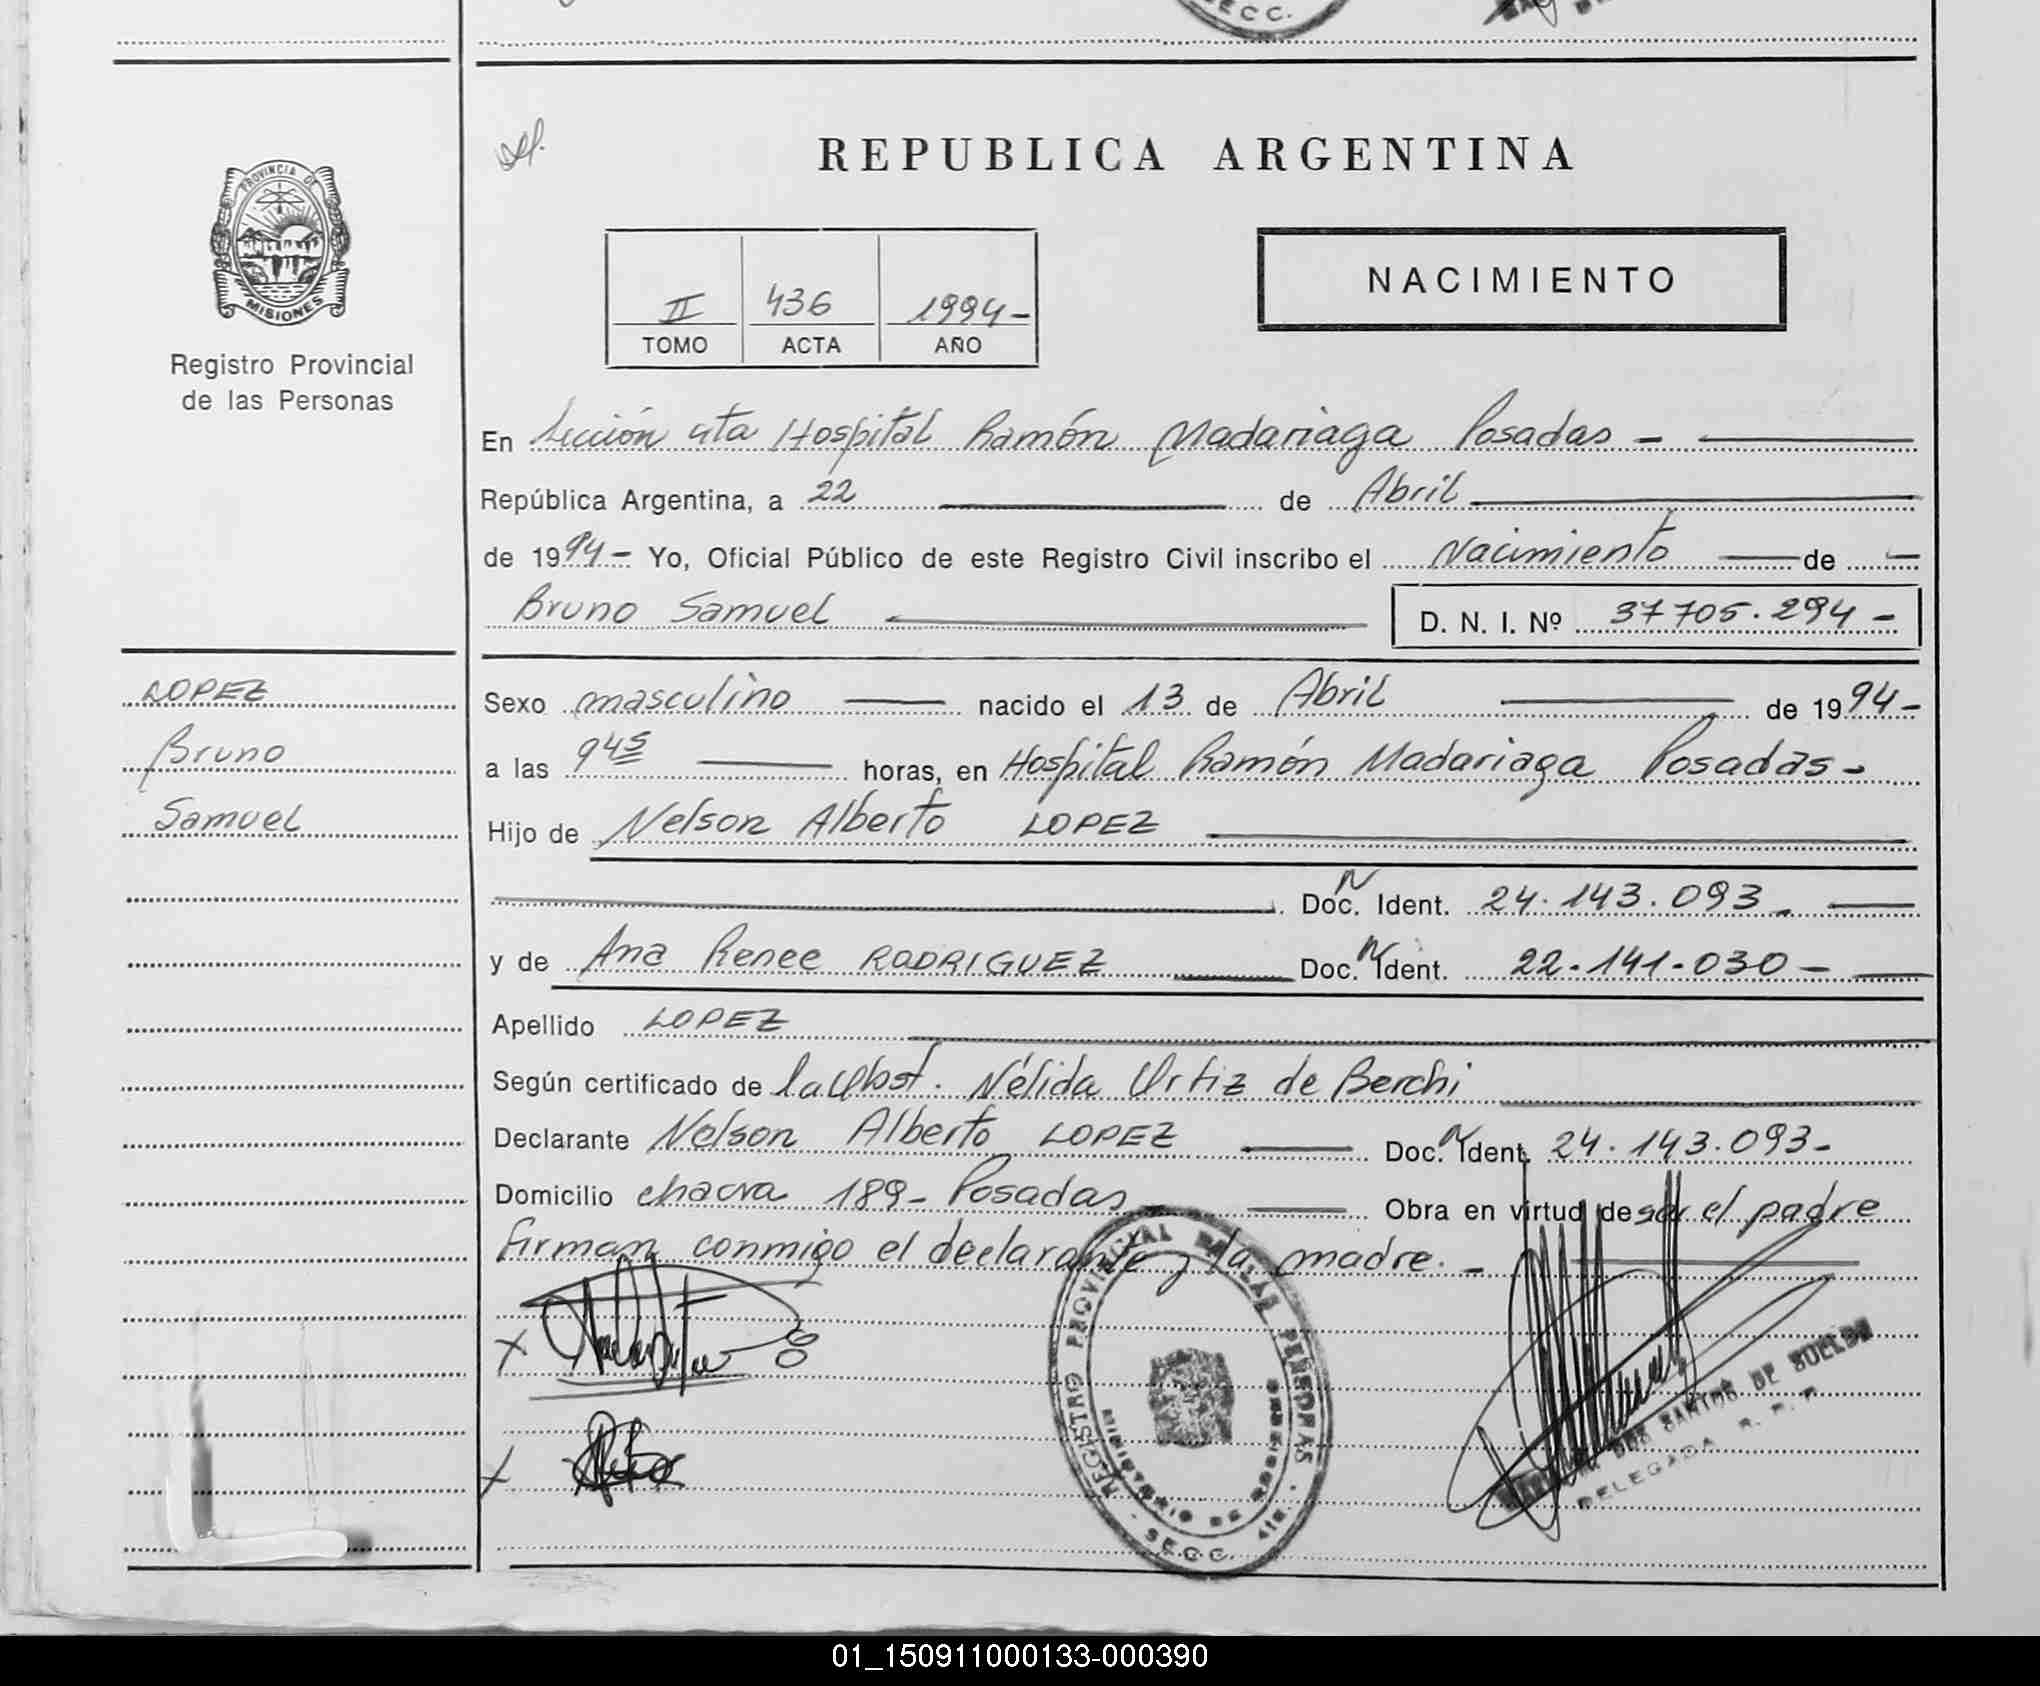 SECC.
REPUBLICA ARGENTINA
PROVINCIA DE
MISIONES
Registro Provincial
de las Personas
NACIMIENTO
II 436 1994-
TOMO ACTA AÑO
En Sección 4ta Hospital Ramón Madariaga Posadas -
República Argentina, a 22 de Abril
de 1994- Yo, Oficial Público de este Registro Civil inscribo el Nacimiento de
Bruno Samuel D. N. I. Nº 37705.294-
LOPEZ
Bruno
Samuel
Sexo masculino nacido el 13 de Abril de 1994-
a las 945 horas, en Hospital Ramón Madariaga Posadas-
Hijo de Nelson Alberto LOPEZ
Doc. N Ident. 24.143.093.
y de Ana Renee RODRIGUEZ Doc. N Ident. 22.141.030-
Apellido LOPEZ
Según certificado de la Obst. Nélida Ortiz de Berchi
Declarante Nelson Alberto LOPEZ Doc. N Ident. 24.143.093-
Domicilio chacra 189- Posadas Obra en virtud de ser el padre
Firman conmigo el declarante y la madre.-
REGISTRO PROVINCIAL DE LAS PERSONAS
MINISTERIO DE
SECC. 4ta.
DOS SANTOS DE
DELEGADA R. P. P.
01_150911000133-000390